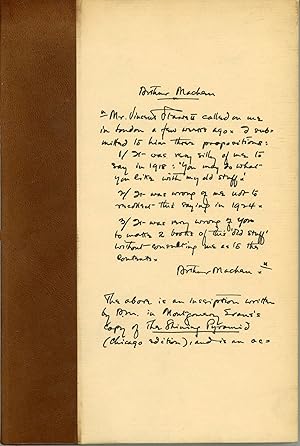 Arthur Machen
"Mr. Vincent Starrett called on me
in London a few weeks ago. I sub-
mitted to him these propositions:
1/ It was very silly of me to
say in 1918: 'You may do what
you like with my old stuff'.
2/ It was wrong of me not to
recollect this saying in 1924.
3/ It was very wrong of you
to make 2 books of the 'old stuff'
without consulting me as to the
contents.
Arthur Machen."
The above is an inscription written
by in Montgomery Evans's
copy of The Shining Pyramid
(Chicago edition), and is an